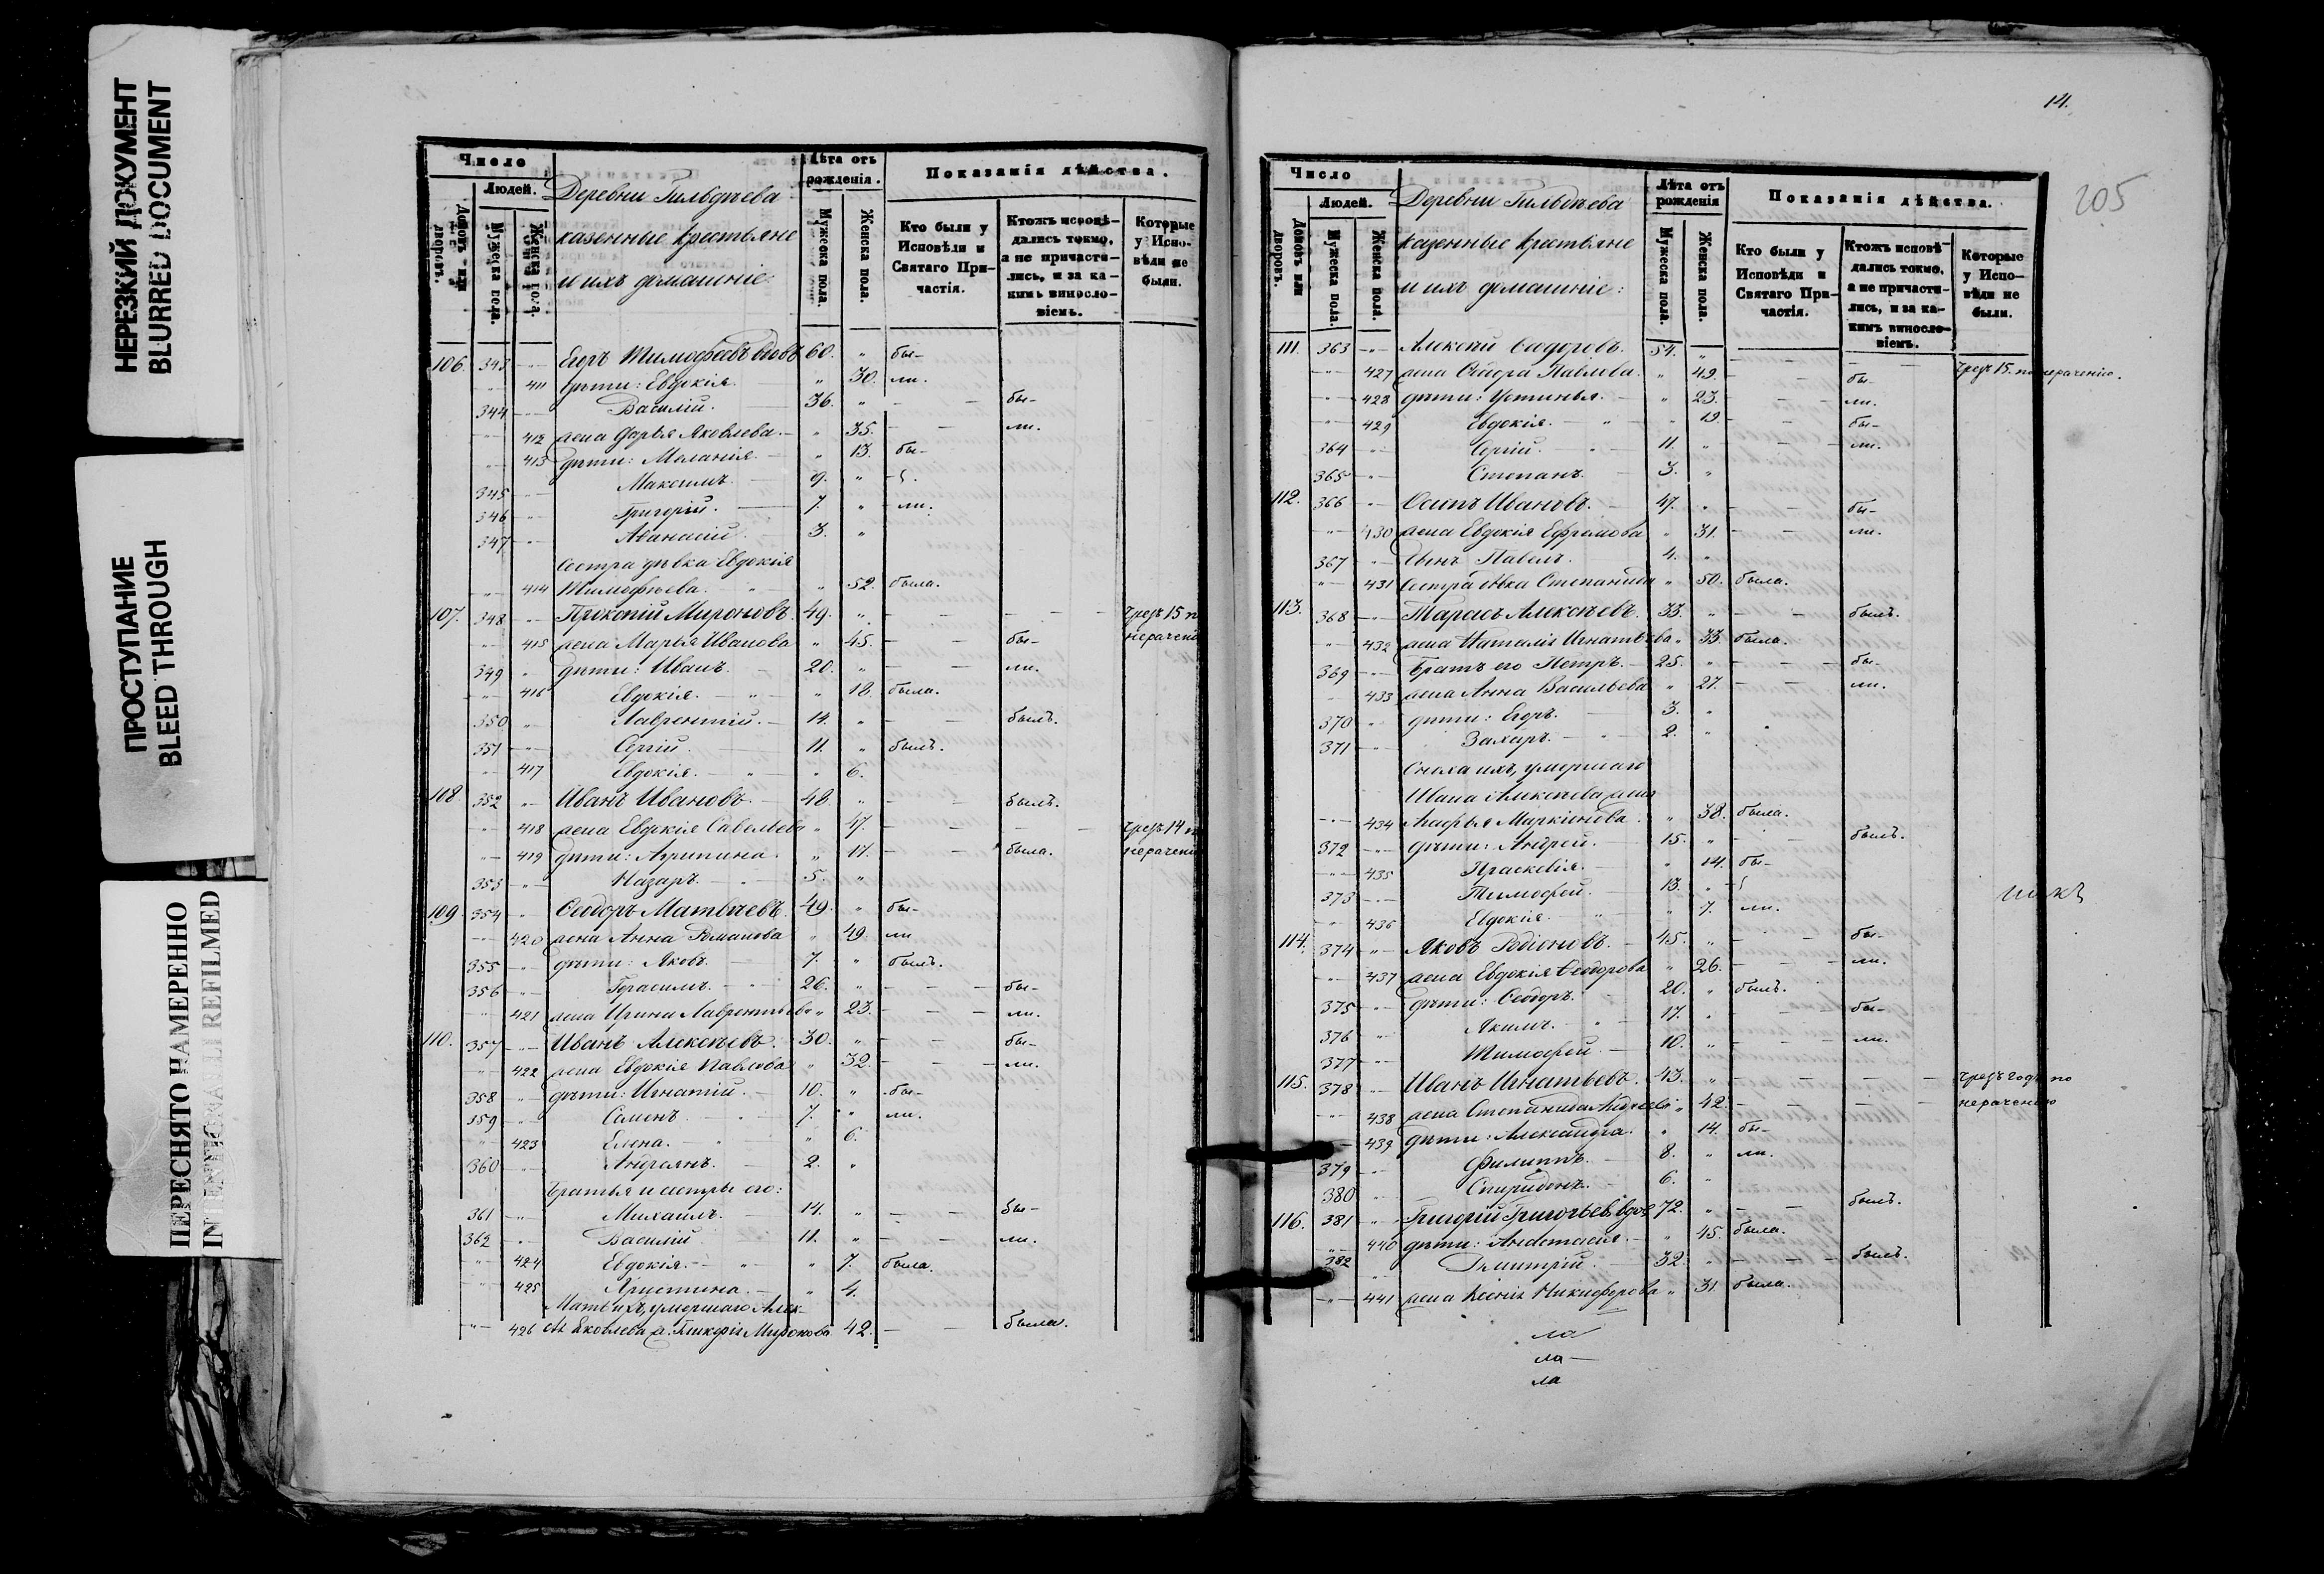 НЕРЕЗКИЙ ДОКУМЕНТ
BLURRED DOCUMENT
ПРОСТУПАНИЕ
BLEED THROUGH
ПЕРЕСНЯТО НАМЕРЕННО
INTENTIONALLY REFILMED
Число
Людей.
Домовъ или дворовъ.
Мужеска пола.
Женска пола.
Деревни Гильдѣева
казенные крестьяне
и ихъ домашніе:
Лѣта отъ рожденія.
Мужеска пола.
Женска пола.
Показанія дѣйства.
Кто были у Исповѣди и Святаго Причастія.
Ктожъ исповѣдались токмо, а не причастились, и за какимъ винословіемъ.
Которые у Исповѣди не были.
106. 343 Егоръ Тимофеевъ вдовъ 60. бы-
411 дѣти: Евдокія. 30. ли.
344 Василій. 36. бы-
412 жена Дарья Яковлева. 35. ли.
413 дѣти: Меланія. 13. бы-
345 Максимъ. 9.
346 Григорій. 7. ли.
347 Аѳанасій. 3.
Сестра дѣвка Евдокія
414 Тимофѣева. 52. была.
107. 348 Прокопій Мироновъ. 49. чрезъ 15 п
415 жена Марья Иванова 45. бы- нерачені
349 дѣти: Иванъ. 20. ли.
416 Евдокія. 18. была.
350 Лаврентій. 14. былъ.
351 Сергій. 11. былъ.
417 Евдокія. 6.
108. 352 Иванъ Ивановъ. 48. былъ.
418 жена Евдокія Савельева 47. чрезъ 14 п
419 дѣти: Агрипина. 17. была. нерачені
353 Назаръ. 5.
109. 354 Ѳеодоръ Матвѣевъ. 49. бы-
420 жена Анна Романова 49. ли
355 дѣти: Яковъ. 7. былъ.
356 Герасимъ. 26. бы-
421 жена Ирина Лаврентьева 23. ли.
110. 357 Иванъ Алексѣевъ. 30. бы-
422 жена Евдокія Павлова 32. ли.
358 дѣти: Игнатій. 10. бы-
359 Семенъ. 7. ли.
423 Елена. 6.
360 Андреянъ. 2.
Братья и сестры его:
361 Михаилъ. 14. бы-
362 Василій 11. ли.
424 Евдокія. 7. была.
425 Христина. 4.
Мать ихъ, умершаго Алек-
426 сѣя Яковлева ж. Гликерія Миронова 42. была.
14.
205
Число
Людей.
Домовъ или дворовъ.
Мужеска пола.
Женска пола.
Деревни Гильдѣева
казенные крестьяне
и ихъ домашніе:
Лѣта отъ рожденія
Мужеска пола.
Женска пола.
Показанія дѣйства.
Кто были у Исповѣди и Святаго Причастія.
Ктожъ исповѣдались токмо, а не причастились, и за какимъ винословіемъ.
Которые у Исповѣди не были.
111. 363 Алексѣй Ѳеодоровъ. 54. чрезъ 15. по нераченію.
427 жена Ѳеодора Павлова. 49. бы-
428 дѣти: Устинья. 23. ли.
429 Евдокія. 19. бы-
364 Сергій. 11. ли.
365 Степанъ. 3.
112. 366 Осипъ Ивановъ. 47. бы-
430 жена Евдокія Ефремова 31. ли.
367 сынъ Павелъ. 4.
431 Сестра дѣвка Степанида 50. была.
113. 368 Тарасъ Алексѣевъ. 33. былъ.
432 жена Наталія Игнатьева 33. была.
369 Братъ его Петръ. 25. бы-
433 жена Анна Васильева 27. ли.
370 дѣти: Егоръ. 3.
371 Захаръ. 2.
Сноха ихъ, умершаго
Ивана Алексѣева жена
434 Агафья Маркіанова. 38. была.
372 дѣти: Андрей. 15. былъ.
435 Праскевія. 14. бы-
373 Тимофей. 13.
436 Евдокія. 7. ли.
114. 374 Яковъ Родіоновъ. 45. бы-
437 жена Евдокія Ѳеодорова 26. ли.
375 дѣти: Ѳеодоръ. 20. былъ.
376 Якимъ. 17. бы-
377 Тимофей. 10. ли.
115. 378 Иванъ Игнатьевъ. 43. чрезъ годъ по
438 жена Степанида Андреева 42. нераченію
439 дѣти: Александра. 14. бы-
379 Филиппъ. 8. ли.
380 Спиридонъ. 6.
116. 381 Григорій Григорьевъ вдов 72. былъ.
440 дѣти: Анастасія. 45. была.
382 Димитрій. 32. былъ.
441 жена Ксенія Никифорова 31. была.
ла
ла
ла